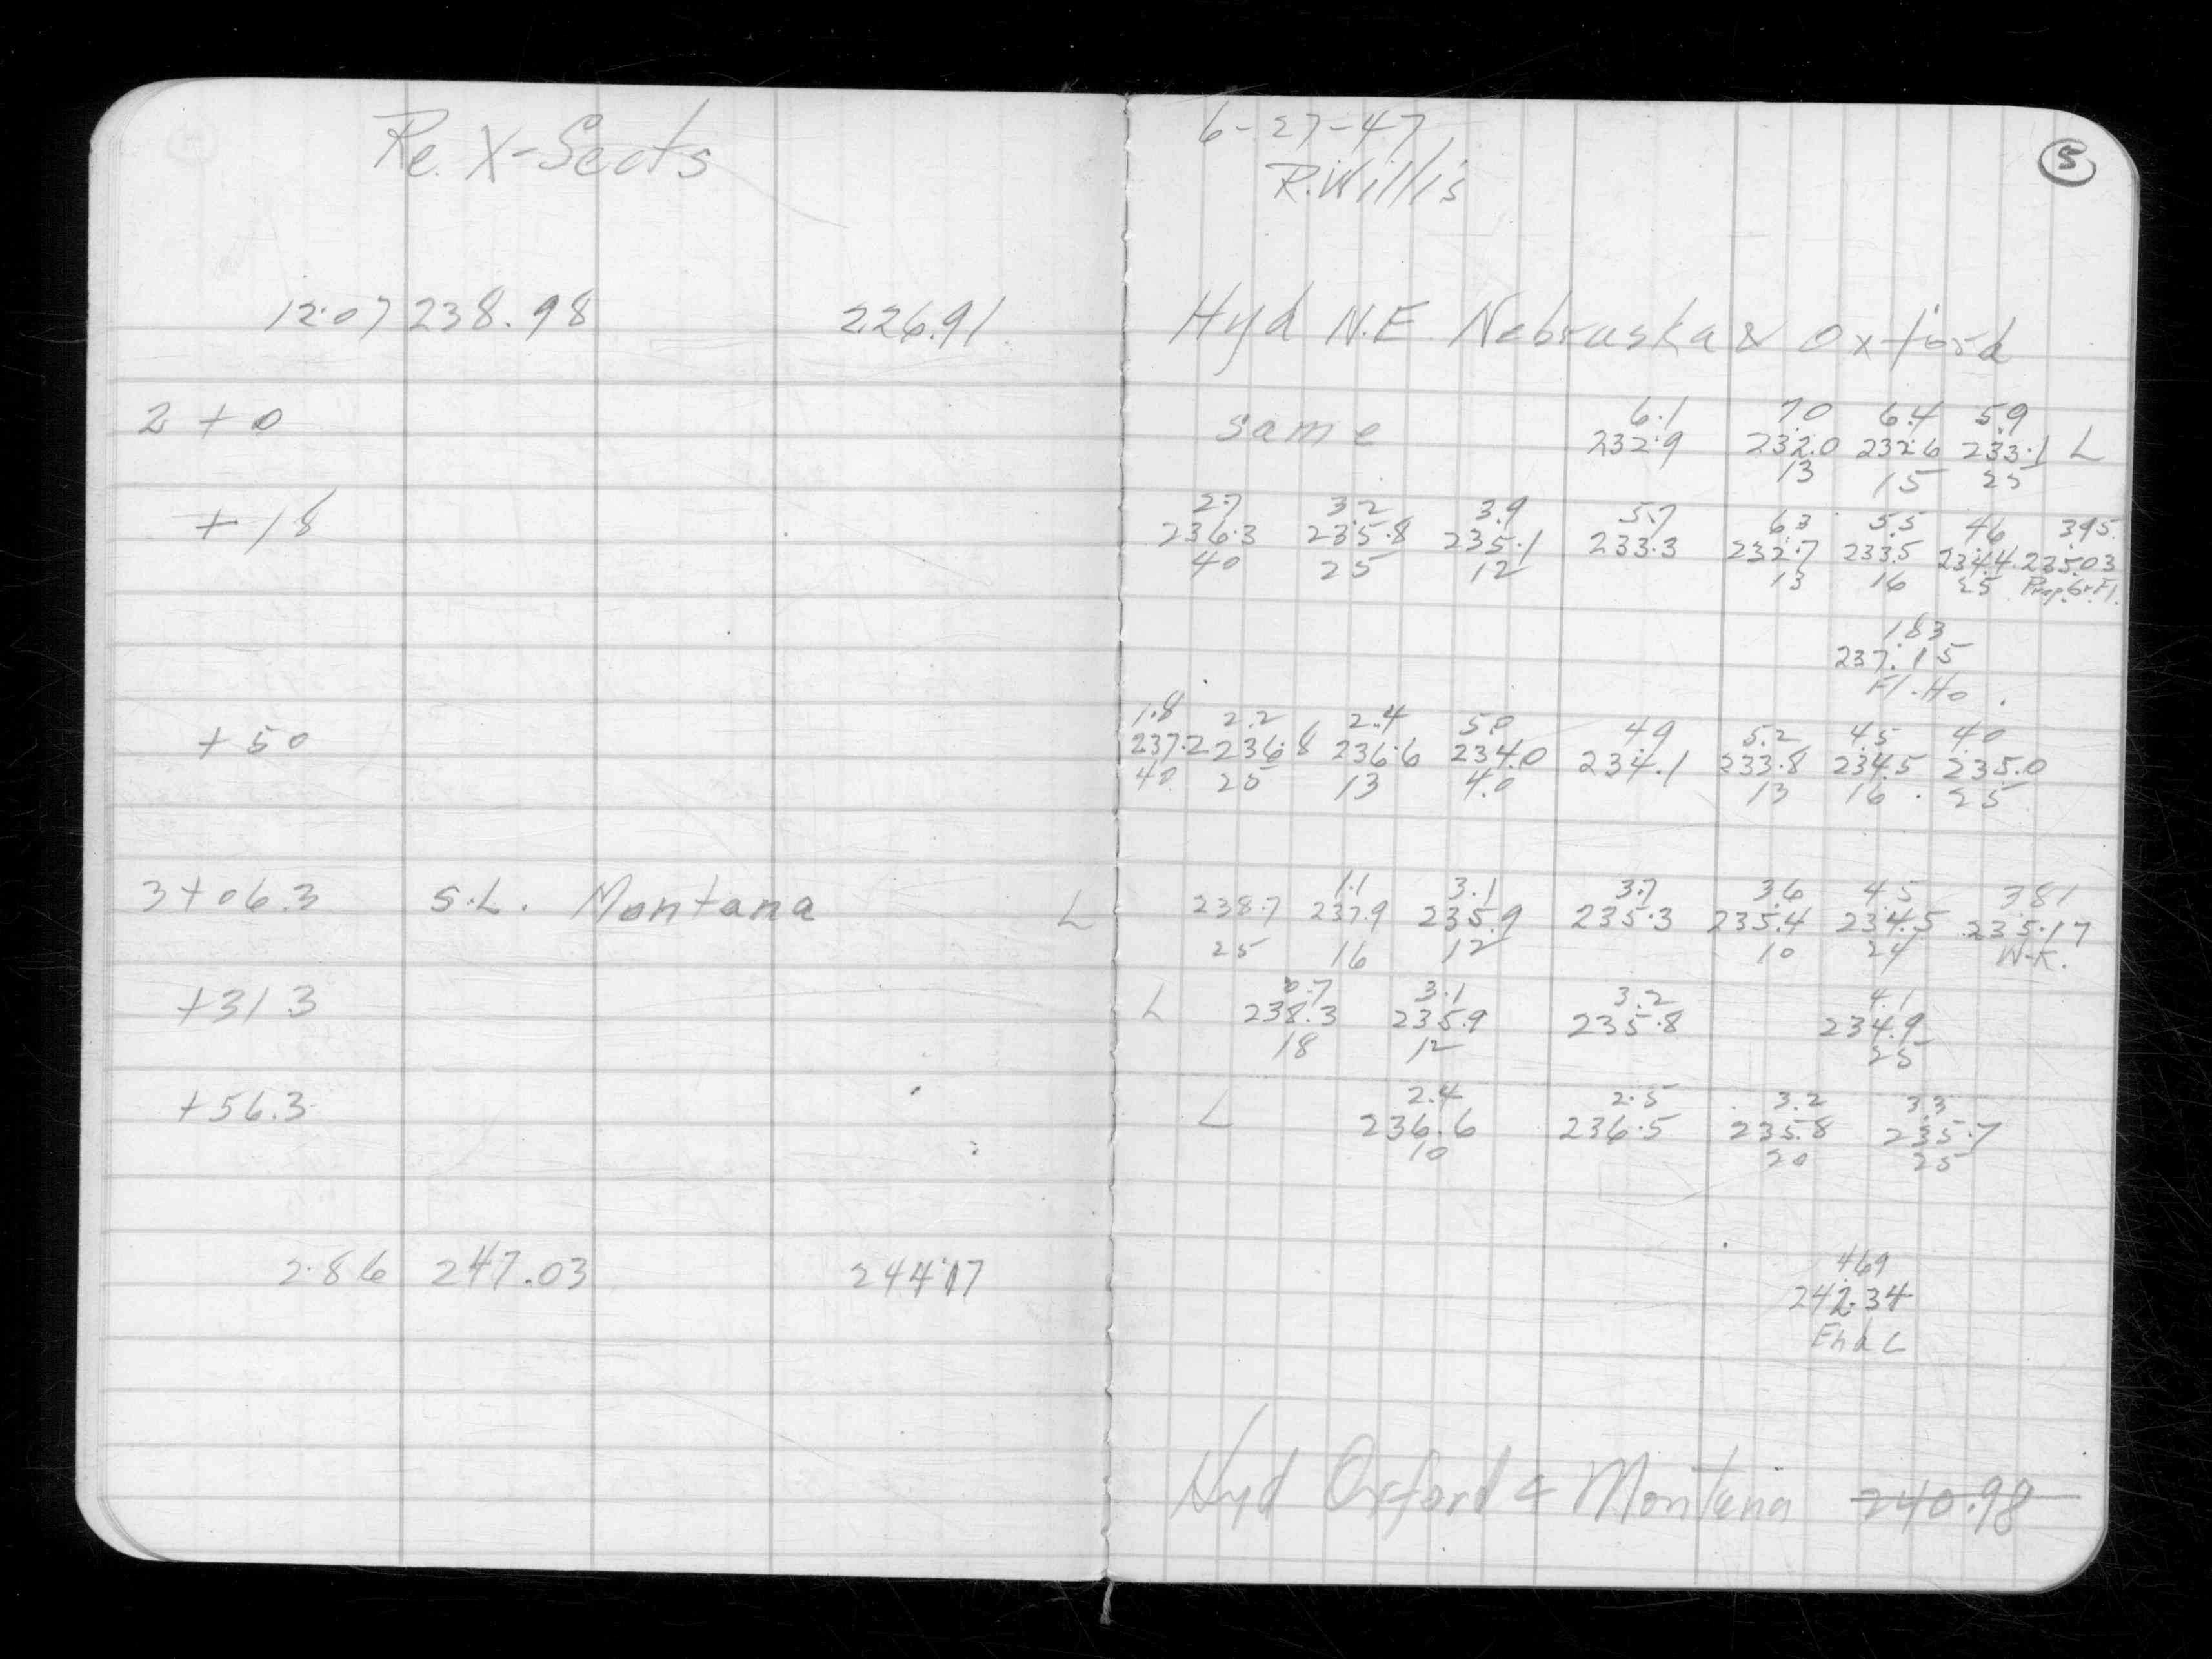 Re. X-Sects
12.07 238.98 226.91
2 + 0
+ 18
+ 50
3 + 06.3 S.L. Montana
+ 31.3
+ 56.3
2.86 247.03 244.17
6-27-47
R. Willis
5
Hyd N.E. Nebraska & Oxford
6.1 7.0 6.4 5.9
same 232.9 232.0 232.6 233.1 L
13 15 25
2.7 3.2 3.9 5.7 6.3 5.5 4.6 3.95
236.3 235.8 235.1 233.3 232.7 233.5 234.4 235.03
40 25 12 13 16 25 Prop. Gr. Fl.
1.83
237.15
Fl. Ho.
1.8 2.2 2.4 5.0 4.9 5.2 4.5 4.0
237.2 236.8 236.6 234.0 234.1 233.8 234.5 235.0
40 25 13 4.0 13 16 25
1.1 3.1 3.7 3.6 4.5 3.81
L 238.7 237.9 235.9 235.3 235.4 234.5 235.17
25 16 12 10 24 W-K.
0.7 3.1 3.2 4.1
L 238.3 235.9 235.8 234.9
18 12 25
2.4 2.5 3.2 3.3
L 236.6 236.5 235.8 235.7
10 20 25
4.69
242.34
End C
Hyd Oxford & Montana 240.98